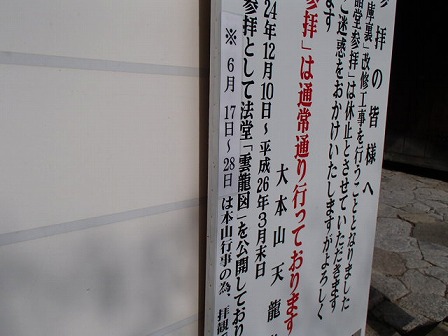 参拝の皆様へ
庫裏」改修工事を行うこととなりました
諸堂参拝」は休止とさせていただきます
ご迷惑をおかけいたしますがよろしく
ます
参拝」は通常通り行っております
24年12月10日～平成26年3月末日
大本山天龍
参拝として法堂「雲龍図」を公開しており
※6月17日～28日は本山行事の為、拝観